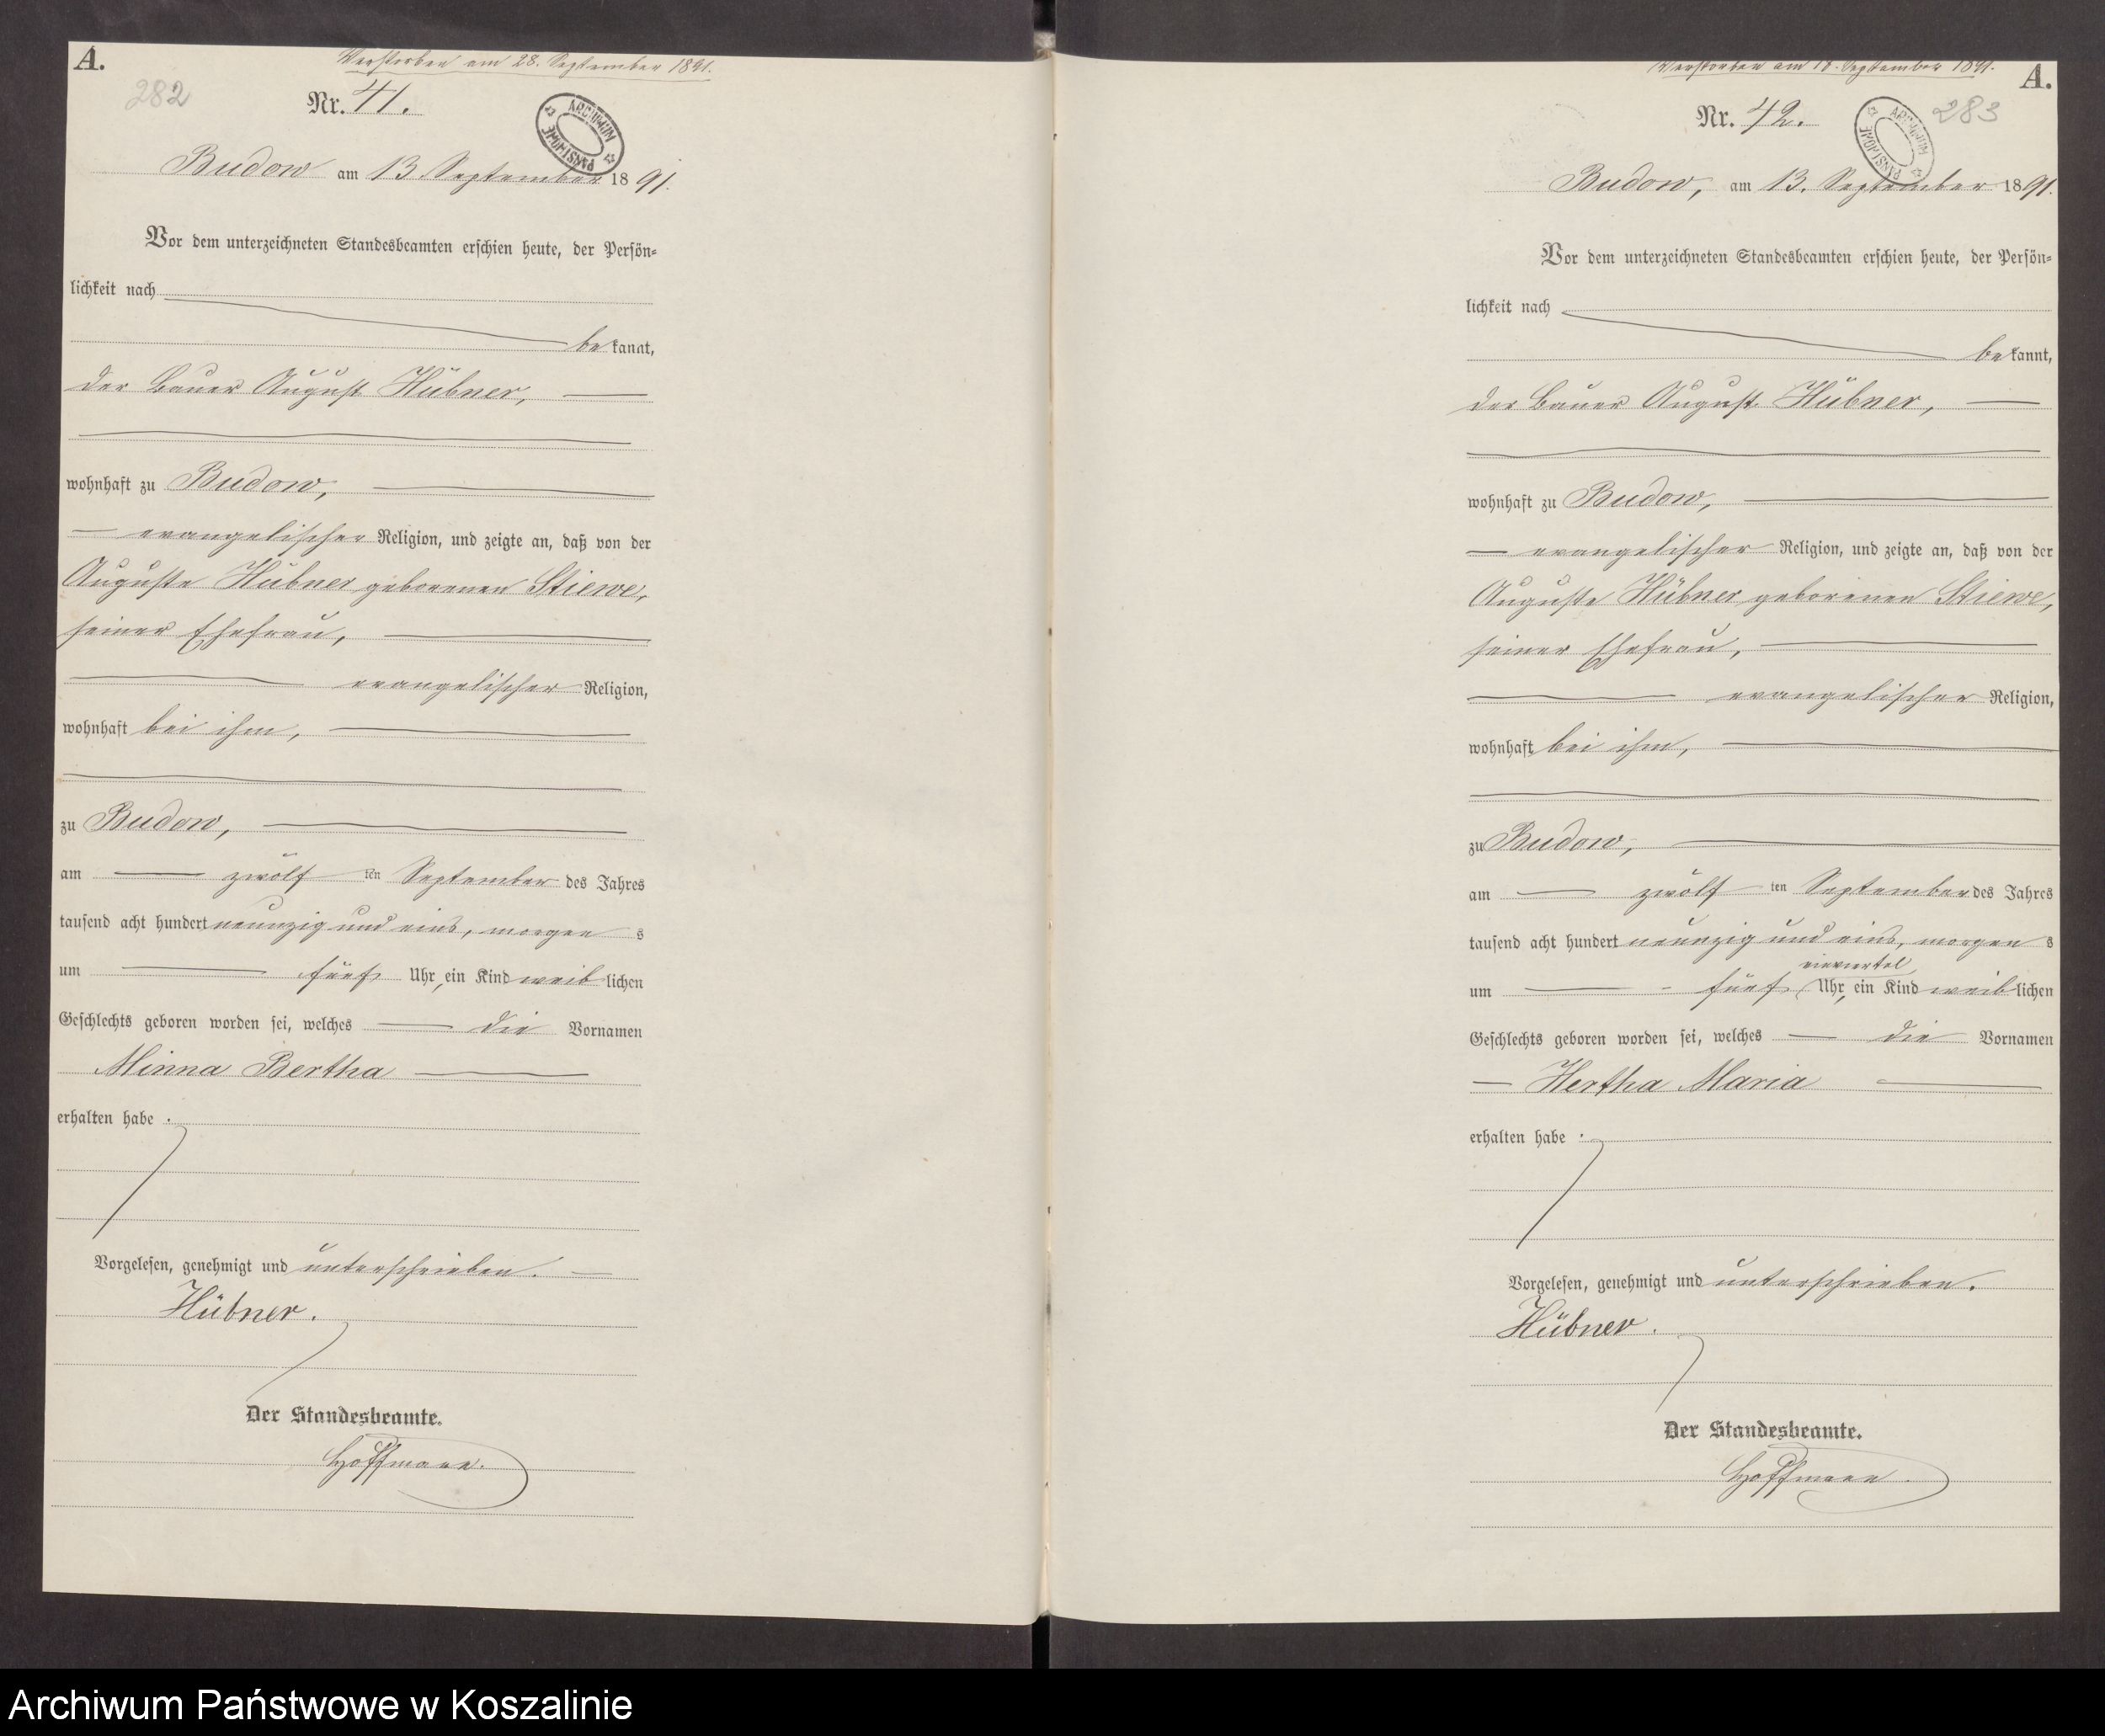 A.
Verstorben am 28. September 1891.
282
Nr. 41.
ARCHIWUM PAŃSTWOWE
Budow am 13. September 1891.
Vor dem unterzeichneten Standesbeamten erschien heute, der Persön=
lichkeit nach
bekannt,
der Bauer August Hübner,
wohnhaft zu Budow,
evangelischer Religion, und zeigte an, daß von der
Auguste Hübner geborenen Stiewe,
seiner Ehefrau,
evangelischer Religion,
wohnhaft bei ihm,
zu Budow,
am zwölf ten September des Jahres
tausend acht hundert neunzig und eins, morgens
um fünf Uhr, ein Kind weiblichen
Geschlechts geboren worden sei, welches die Vornamen
Minna Bertha
erhalten habe.
Vorgelesen, genehmigt und unterschrieben.
Hübner.
Der Standesbeamte.
Hoffmann.
Verstorben am 18. September 1891.
A.
283
Nr. 42.
ARCHIWUM PAŃSTWOWE
Budow, am 13. September 1891.
Vor dem unterzeichneten Standesbeamten erschien heute, der Persön=
lichkeit nach
bekannt,
der Bauer August Hübner,
wohnhaft zu Budow,
evangelischer Religion, und zeigte an, daß von der
Auguste Hübner geborenen Stiewe,
seiner Ehefrau,
evangelischer Religion,
wohnhaft bei ihm,
zu Budow,
am zwölf ten September des Jahres
tausend acht hundert neunzig und eins, morgens
einviertel
um fünf Uhr, ein Kind weiblichen
Geschlechts geboren worden sei, welches die Vornamen
Hertha Maria
erhalten habe.
Vorgelesen, genehmigt und unterschrieben.
Hübner.
Der Standesbeamte.
Hoffmann.
Archiwum Państwowe w Koszalinie